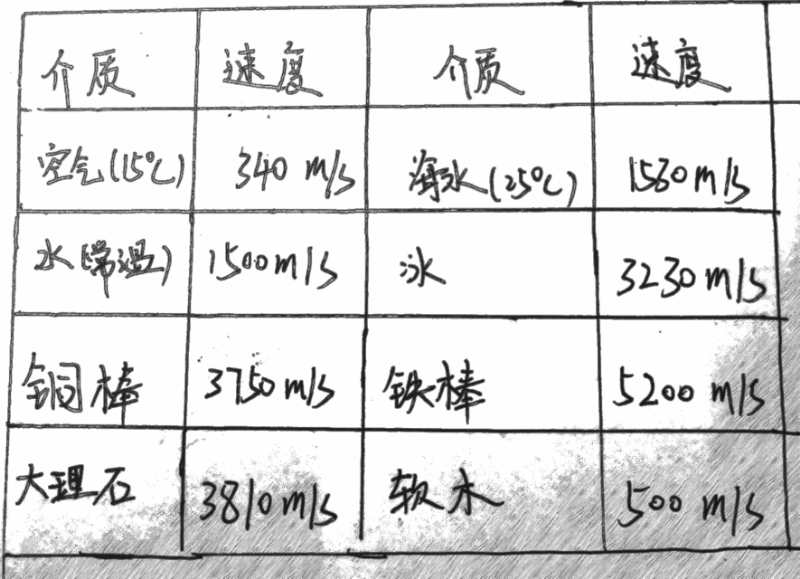 介质 速度 介质 速度
空气(15℃) 340 m/s 海水(25℃) 1530 m/s
水(常温) 1500 m/s 冰 3230 m/s
铜棒 3750 m/s 铁棒 5200 m/s
大理石 3810 m/s 软木 500 m/s